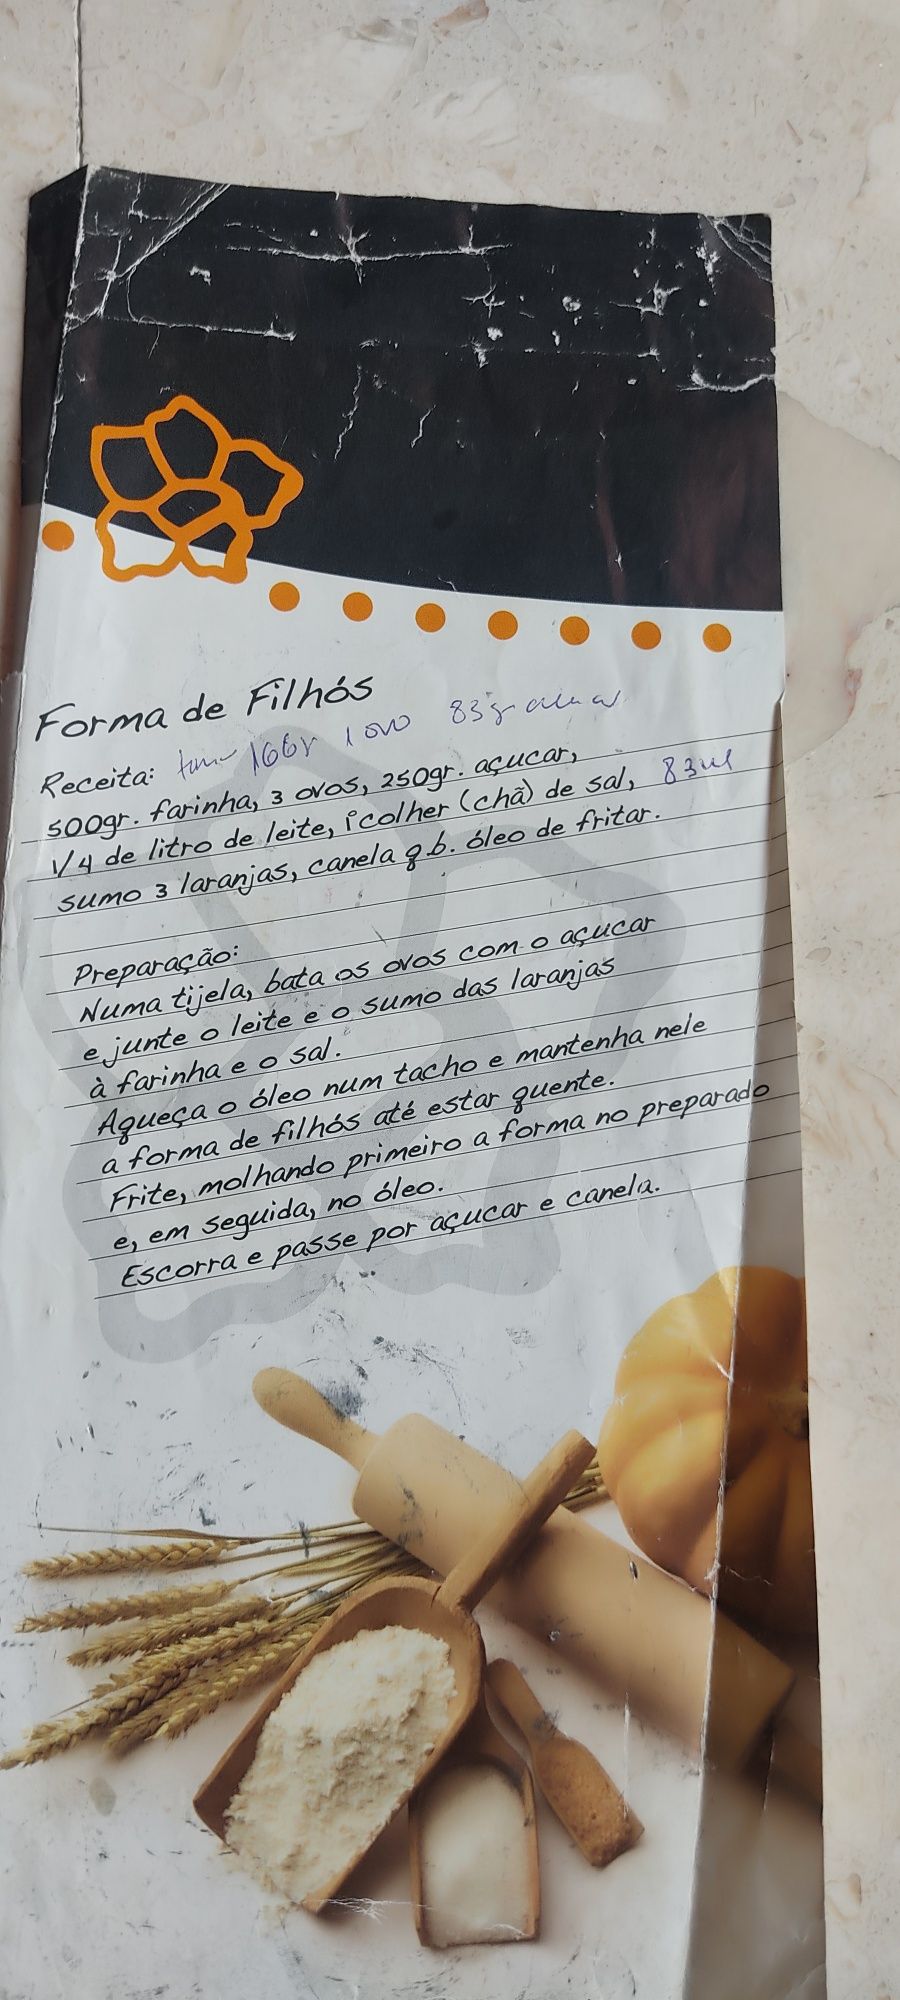 Forma de Filhós
166gr 1 ovo 83gr
Receita:
500gr. farinha, 3 ovos, 250gr. açucar,
1/4 de litro de leite, 1colher (chã) de sal, 83ml
sumo 3 laranjas, canela q.b. óleo de fritar.
Preparação:
Numa tijela, bata os ovos com o açucar
e junte o leite e o sumo das laranjas
à farinha e o sal.
Aqueça o óleo num tacho e mantenha nele
a forma de filhós até estar quente.
Frite, molhando primeiro a forma no preparado
e, em seguida, no óleo.
Escorra e passe por açucar e canela.